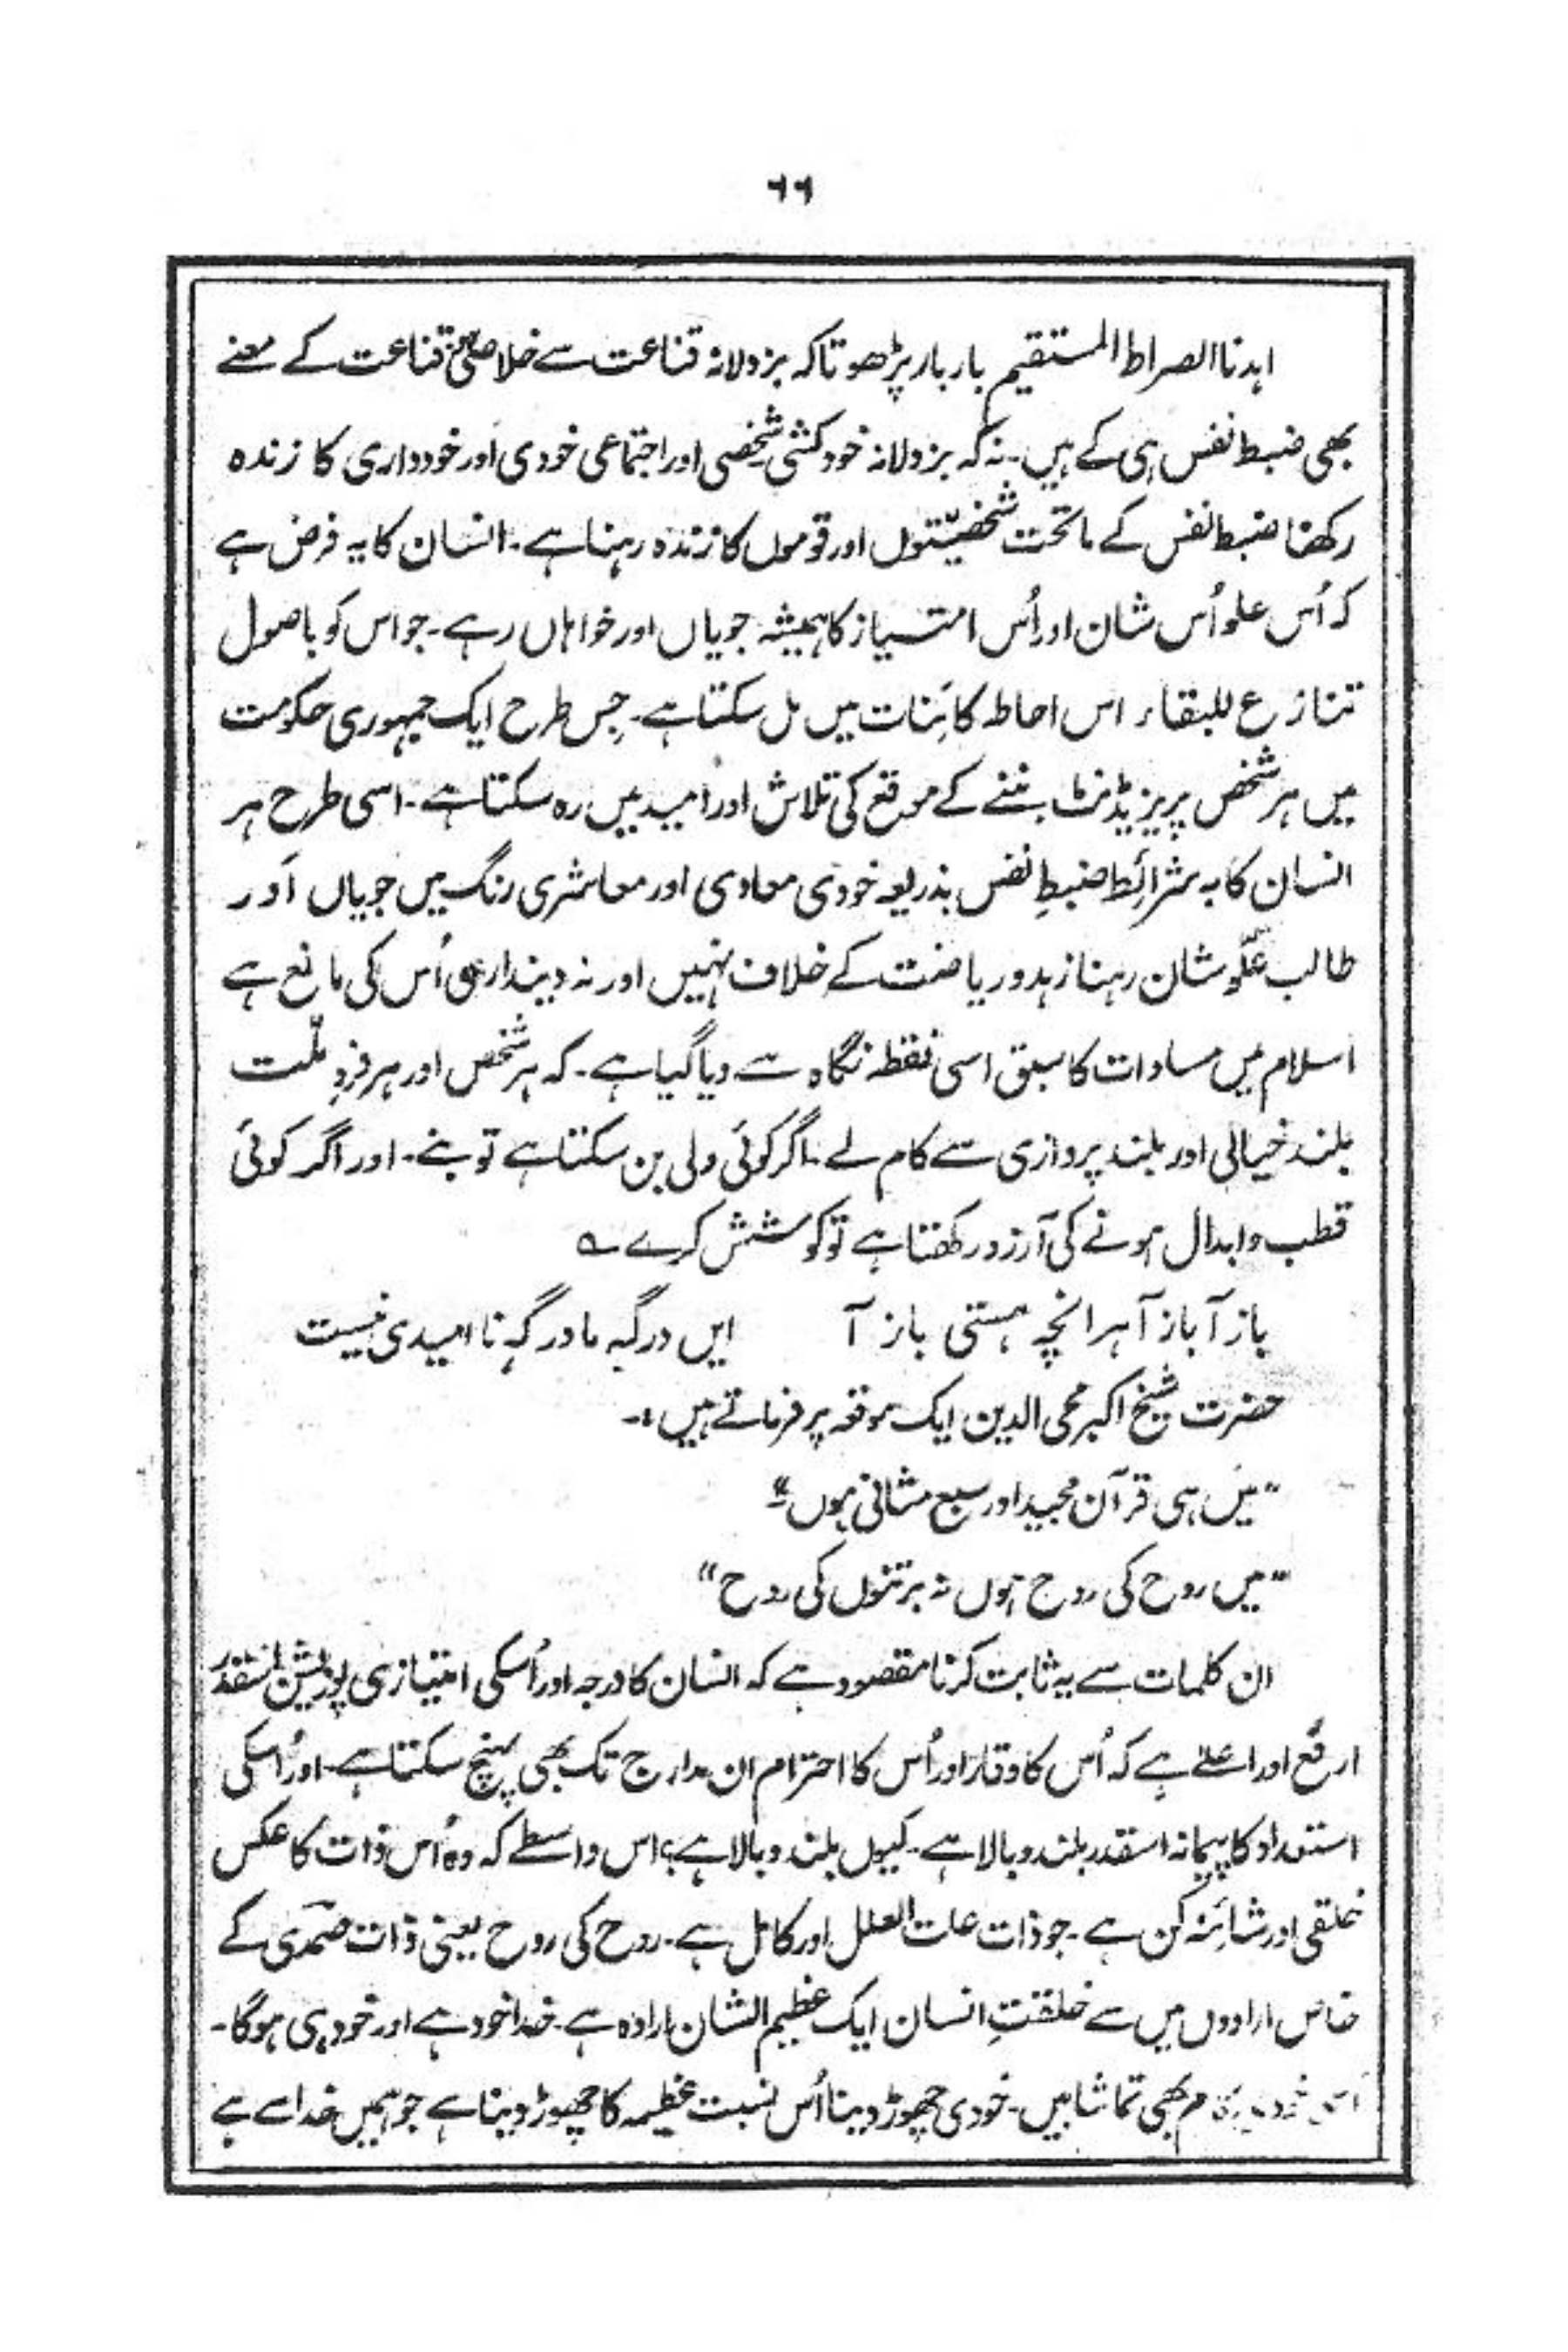 ۶۶
اہدنا الصراط المستقیم بار بار پڑھو تاکہ بزدلانہ قناعت سے خلاصی ہو۔ قناعت کے معنے
بھی ضبط نفس ہی کے ہیں۔ نہ کہ بزدلانہ خودکشی شخصی اور اجتماعی خودی اور خودداری کا زندہ
رکھنا ضبط نفس کے ماتحت شخصیّتوں اور قوموں کا زندہ رہنا ہے۔ انسان کا یہ فرض ہے
کہ اُس علو اُس شان اور اُس امتیاز کا ہمیشہ جویاں اور خواہاں رہے۔ جو اس کو باصول
تنازع للبقاء اس احاطہ کائنات میں مل سکتا ہے۔ جس طرح ایک جمہوری حکومت
میں ہر شخص پریزیڈنٹ بننے کے موقع کی تلاش اور امید میں رہ سکتا ہے۔ اسی طرح ہر
انسان کا بہ شرائط ضبطِ نفس بذریعہ خودی معادی اور معاشری رنگ میں جویاں اور
طالب علّو شان رہنا زہد و ریاضت کے خلاف نہیں اور نہ دینداری اُس کی مانع ہے
اسلام میں مساوات کا سبق اسی نقطہ نگاہ سے دیا گیا ہے۔ کہ ہر شخص اور ہر فردِ ملّت
بلند خیالی اور بلند پروازی سے کام لے۔ اگر کوئی ولی بن سکتا ہے تو بنے۔ اور اگر کوئی
قطب و ابدال ہونے کی آرزو رکھتا ہے تو کوشش کرے ؎
باز آ باز آ ہر انچہ ہستی باز آ ایں درگہ ما درگہِ نا امیدی نیست
حضرت شیخ اکبر محی الدین ایک موقعہ پر فرماتے ہیں:۔
"میں ہی قرآن مجید اور سبع مثانی ہوں"
"میں روح کی روح ہوں نہ برتنوں کی روح"
ان کلمات سے یہ ثابت کرنا مقصود ہے کہ انسان کا درجہ اور اُسکی امتیازی پوزیشن اسقدر
ارفع اور اعلےٰ ہے کہ اُس کا وقار اور اُس کا احترام ان مدارج تک بھی پہنچ سکتا ہے۔ اور اُسکی
استعداد کا پیمانہ اسقدر بلند و بالا ہے۔ کیوں بلند و بالا ہے؟ اس واسطے کہ وہ اُس ذات کا عکس
خلقی اور شائنہ کن ہے۔ جو ذات علت العلل اور کامل ہے۔ روح کی روح یعنی ذات صمدی کے
خاص ارادوں میں سے خلقتِ انسان ایک عظیم الشان ارادہ ہے۔ خدا خود ہے اور خود ہی ہوگا۔
بھی تماشا ہیں۔ خودی چھوڑ دینا اُس نسبت عظیمہ کا چھوڑ دینا ہے جو ہمیں خدا سے ہے